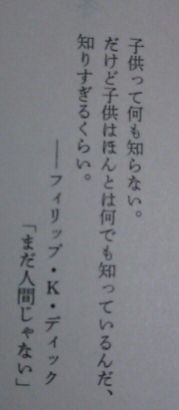 子供って何も知らない。
だけど子供はほんとは何でも知っているんだ、
知りすぎるくらい。
――フィリップ・K・ディック
「まだ人間じゃない」